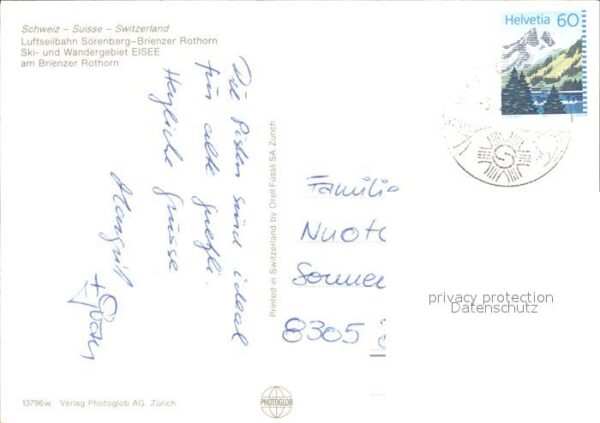 Schweiz – Suisse – Switzerland
Luftseilbahn Sörenberg–Brienzer Rothorn
Ski- und Wandergebiet EISEE
am Brienzer Rothorn
Helvetia 60
Die Pisten sind ideal
für alte
Herzliche Grüsse
Margrit
+
Printed in Switzerland by Orell Füssli SA, Zürich
Familie
Nuot
Sonne
8305
privacy protection
Datenschutz
13796w Verlag Photoglob AG. Zürich
PHOTOGLOB